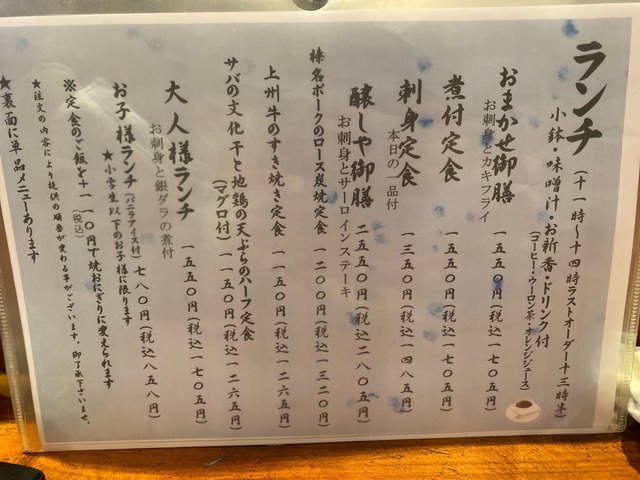 ランチ(十一時〜十四時ラストオーダー十三時半)
小鉢・味噌汁・お新香・ドリンク付
(コーヒー・ウーロン茶・オレンジジュース)
おまかせ御膳 一五五〇円(税込一七〇五円)
お刺身とカキフライ
煮付定食 一五五〇円(税込一七〇五円)
刺身定食 一三五〇円(税込一四八五円)
本日の一品付
醸しや御膳 二五五〇円(税込二八〇五円)
お刺身とサーロインステーキ
榛名ポークのロース炭焼定食 一二〇〇円(税込一三二〇円)
上州牛のすき焼き定食 一一五〇円(税込一二六五円)
サバの文化干と地鶏の天ぷらのハーフ定食
(マグロ付) 一一五〇円(税込一二六五円)
大人様ランチ 一五五〇円(税込一七〇五円)
お刺身と銀ダラの煮付
お子様ランチ(バニラアイス付)七八〇円(税込八五八円)
★小学生以下のお子様に限ります
※定食のご飯を+一一〇円で焼おにぎりに変えられます
(税込)
★注文の内容により提供の順番が変わる事がございます。御了承下さいませ。
★裏面に単品メニューあります